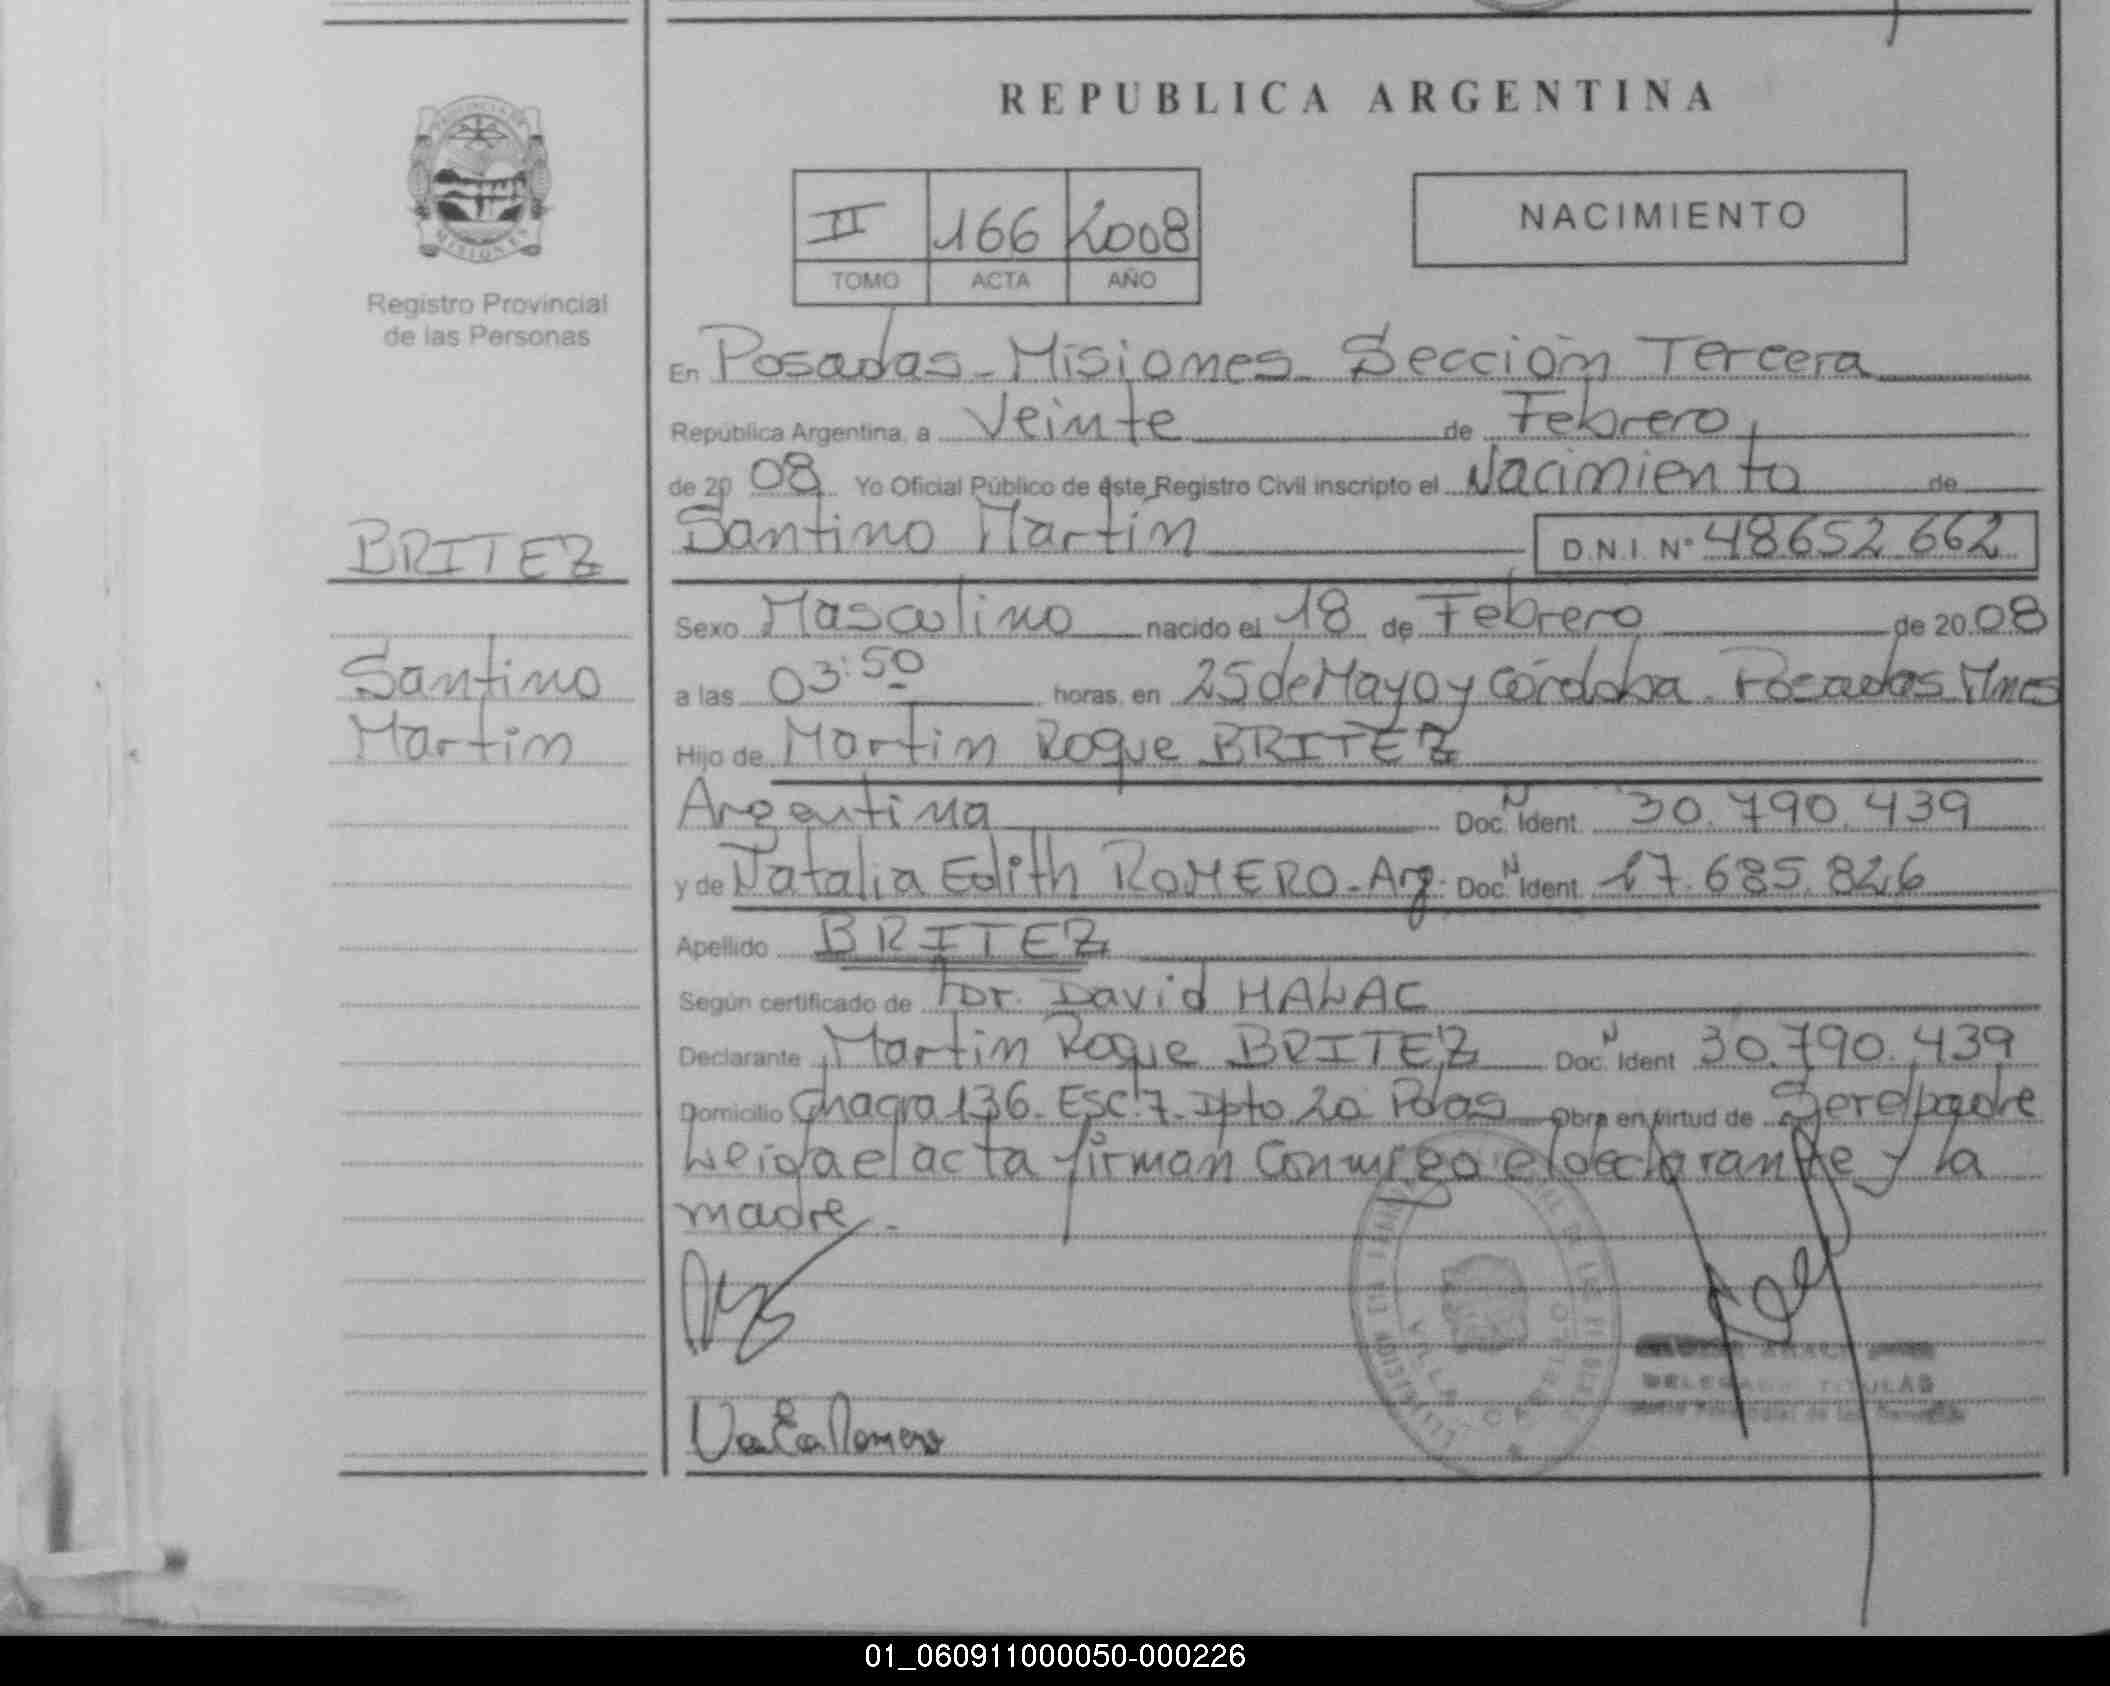 REPUBLICA ARGENTINA
PROVINCIA DE
MISIONES
Registro Provincial
de las Personas
II 166 2008
TOMO ACTA AÑO
NACIMIENTO
En Posadas - Misiones - Sección Tercera
República Argentina, a Veinte de Febrero,
de 20 08 Yo Oficial Público de éste Registro Civil inscripto el Nacimiento de
Santino Martin D.N.I. N° 48652662
BRITEZ
Santino
Martin
Sexo Masculino nacido el 18 de Febrero de 20 08
a las 03:50 horas, en 25 de Mayo y Córdoba. Posadas Mnes
Hijo de Martin Roque BRITEZ
Argentina Doc. N Ident. 30.790.439
y de Natalia Edith ROMERO - Arg. Doc. N Ident. 27.685.826
Apellido BRITEZ
Según certificado de Dr. David HALAC
Declarante Martin Roque BRITEZ Doc. N Ident 30.790.439
Domicilio Chacra 136. Esc. 7. Dpto 2a Pdas Obra en virtud de Ser el padre
Leida el acta firman Conmigo el declarante y la
madre.-
Romero
DELEGADO TITULAR
01_060911000050-000226